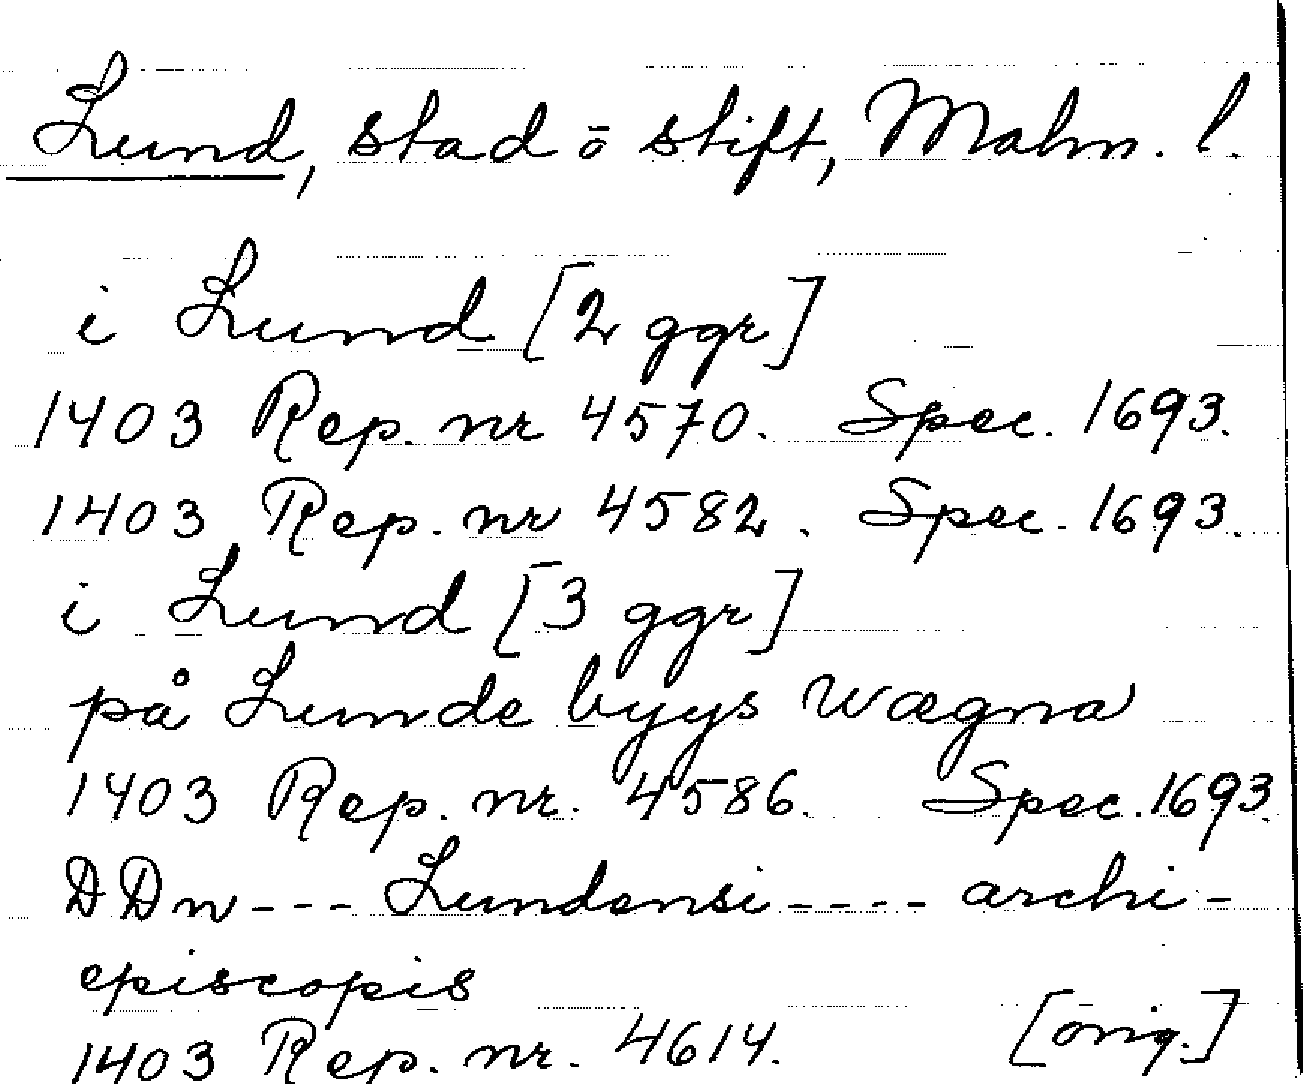 Lund, stad ō stift, Malm. l.
i Lund [2 ggr]
1403 Rep. nr 4570. Spec. 1693.
1403 Rep. nr 4582. Spec. 1693.
i Lund [3 ggr]
på Lunde byys wægna
1403 Rep. nr. 4586. Spec. 1693.
DDn --- Lundensi ---- archi-
episcopis
1403 Rep. nr. 4614. [orig.]